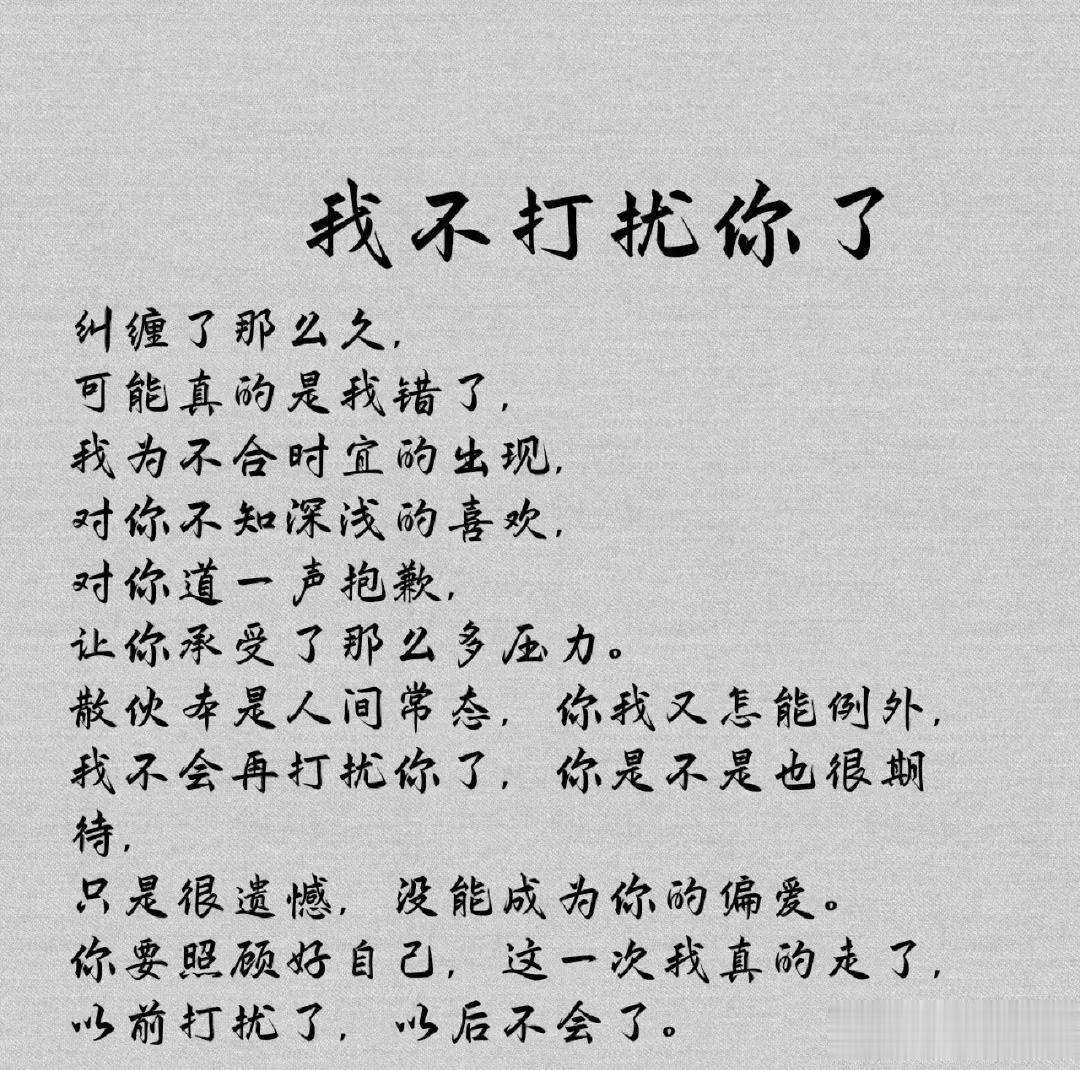 我不打扰你了
纠缠了那么久，
可能真的是我错了，
我为不合时宜的出现，
对你不知深浅的喜欢，
对你道一声抱歉，
让你承受了那么多压力。
散伙本是人间常态，你我又怎能例外，
我不会再打扰你了，你是不是也很期
待，
只是很遗憾，没能成为你的偏爱。
你要照顾好自己，这一次我真的走了，
以前打扰了，以后不会了。